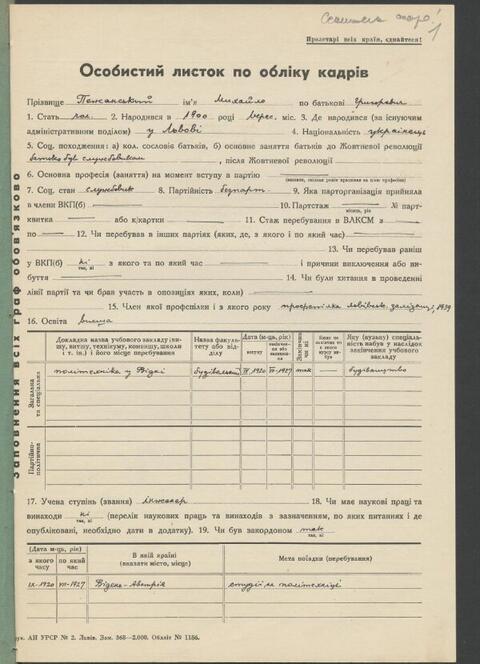 Пролетарі всіх країн, єднайтеся!
Особистий листок по обліку кадрів
Прізвище Пежанський ім'я Михайло по батькові Григорович
1. Стать чол. 2. Народився в 1900 році верес. міс. 3. Де народився (за існуючим
адміністративним поділом) у Львові 4. Національність українець
5. Соц. походження: а) кол. сословіє батьків, б) основне заняття до Жовтневої революції
батько був службовиком, після Жовтневої революції
6. Основна професія (заняття) на момент вступу в партію
7. Соц. стан службовик 8. Партійність безпарт. 9. Яка парторганізація прийняла
в члени ВКП(б) 10. Партстаж № парт-
місяць, рік
квитка або к/картки 11. Стаж перебування в ВЛКСМ з
по 12. Чи перебував в інших партіях (яких, де, з якого і по який час)
13. Чи перебував раніш
у ВКП(б) ні з якого та по який час і причини виключення або ви-
так, ні
буття 14. Чи були хитання в проведенні
лінії партії та чи брав участь в опозиціях яких, коли)
15. Член якої профспілки і з якого року 1939
16. Освіта висша
Заповнення всіх граф обов'язково
Докладна назва учбового закладу (ви-
шу, втишу, технікуму, комвишу, школи
і т. ін.) і його місце перебування
Назва факуль-
тету або від-
ділу
Дата (м-ць, рік)
вступу
закінчен-
ня або
залишення
Закінчив
чи ні
Яку (вузьку) спеціаль-
ність набув у наслідок
закінчення учбового
закладу
Загальна
та спеціальна
політехніка у Відні будівельний IX.1920 VII.1927 так будівництво
Партійно-
політична
17. Учена ступінь (звання) інженер 18. Чи має наукові праці та
винаходи ні (перелік наукових праць та винаходів з зазначенням, по яких питаннях і де
так, ні
опубліковані, необхідно дати в додатку). 19. Чи був закордоном так
так, ні
Дата (м-ць, рік)
з якого
часу
по який
час
В якій країні
(вказати місто, місце)
Мета поїздки (перебування)
IX-1920 VII-1927 Відень-Австрія студії на політехніці
рук. АН УРСР № 2. Львів. Зам. 368—2.000. Обліт № 1186.